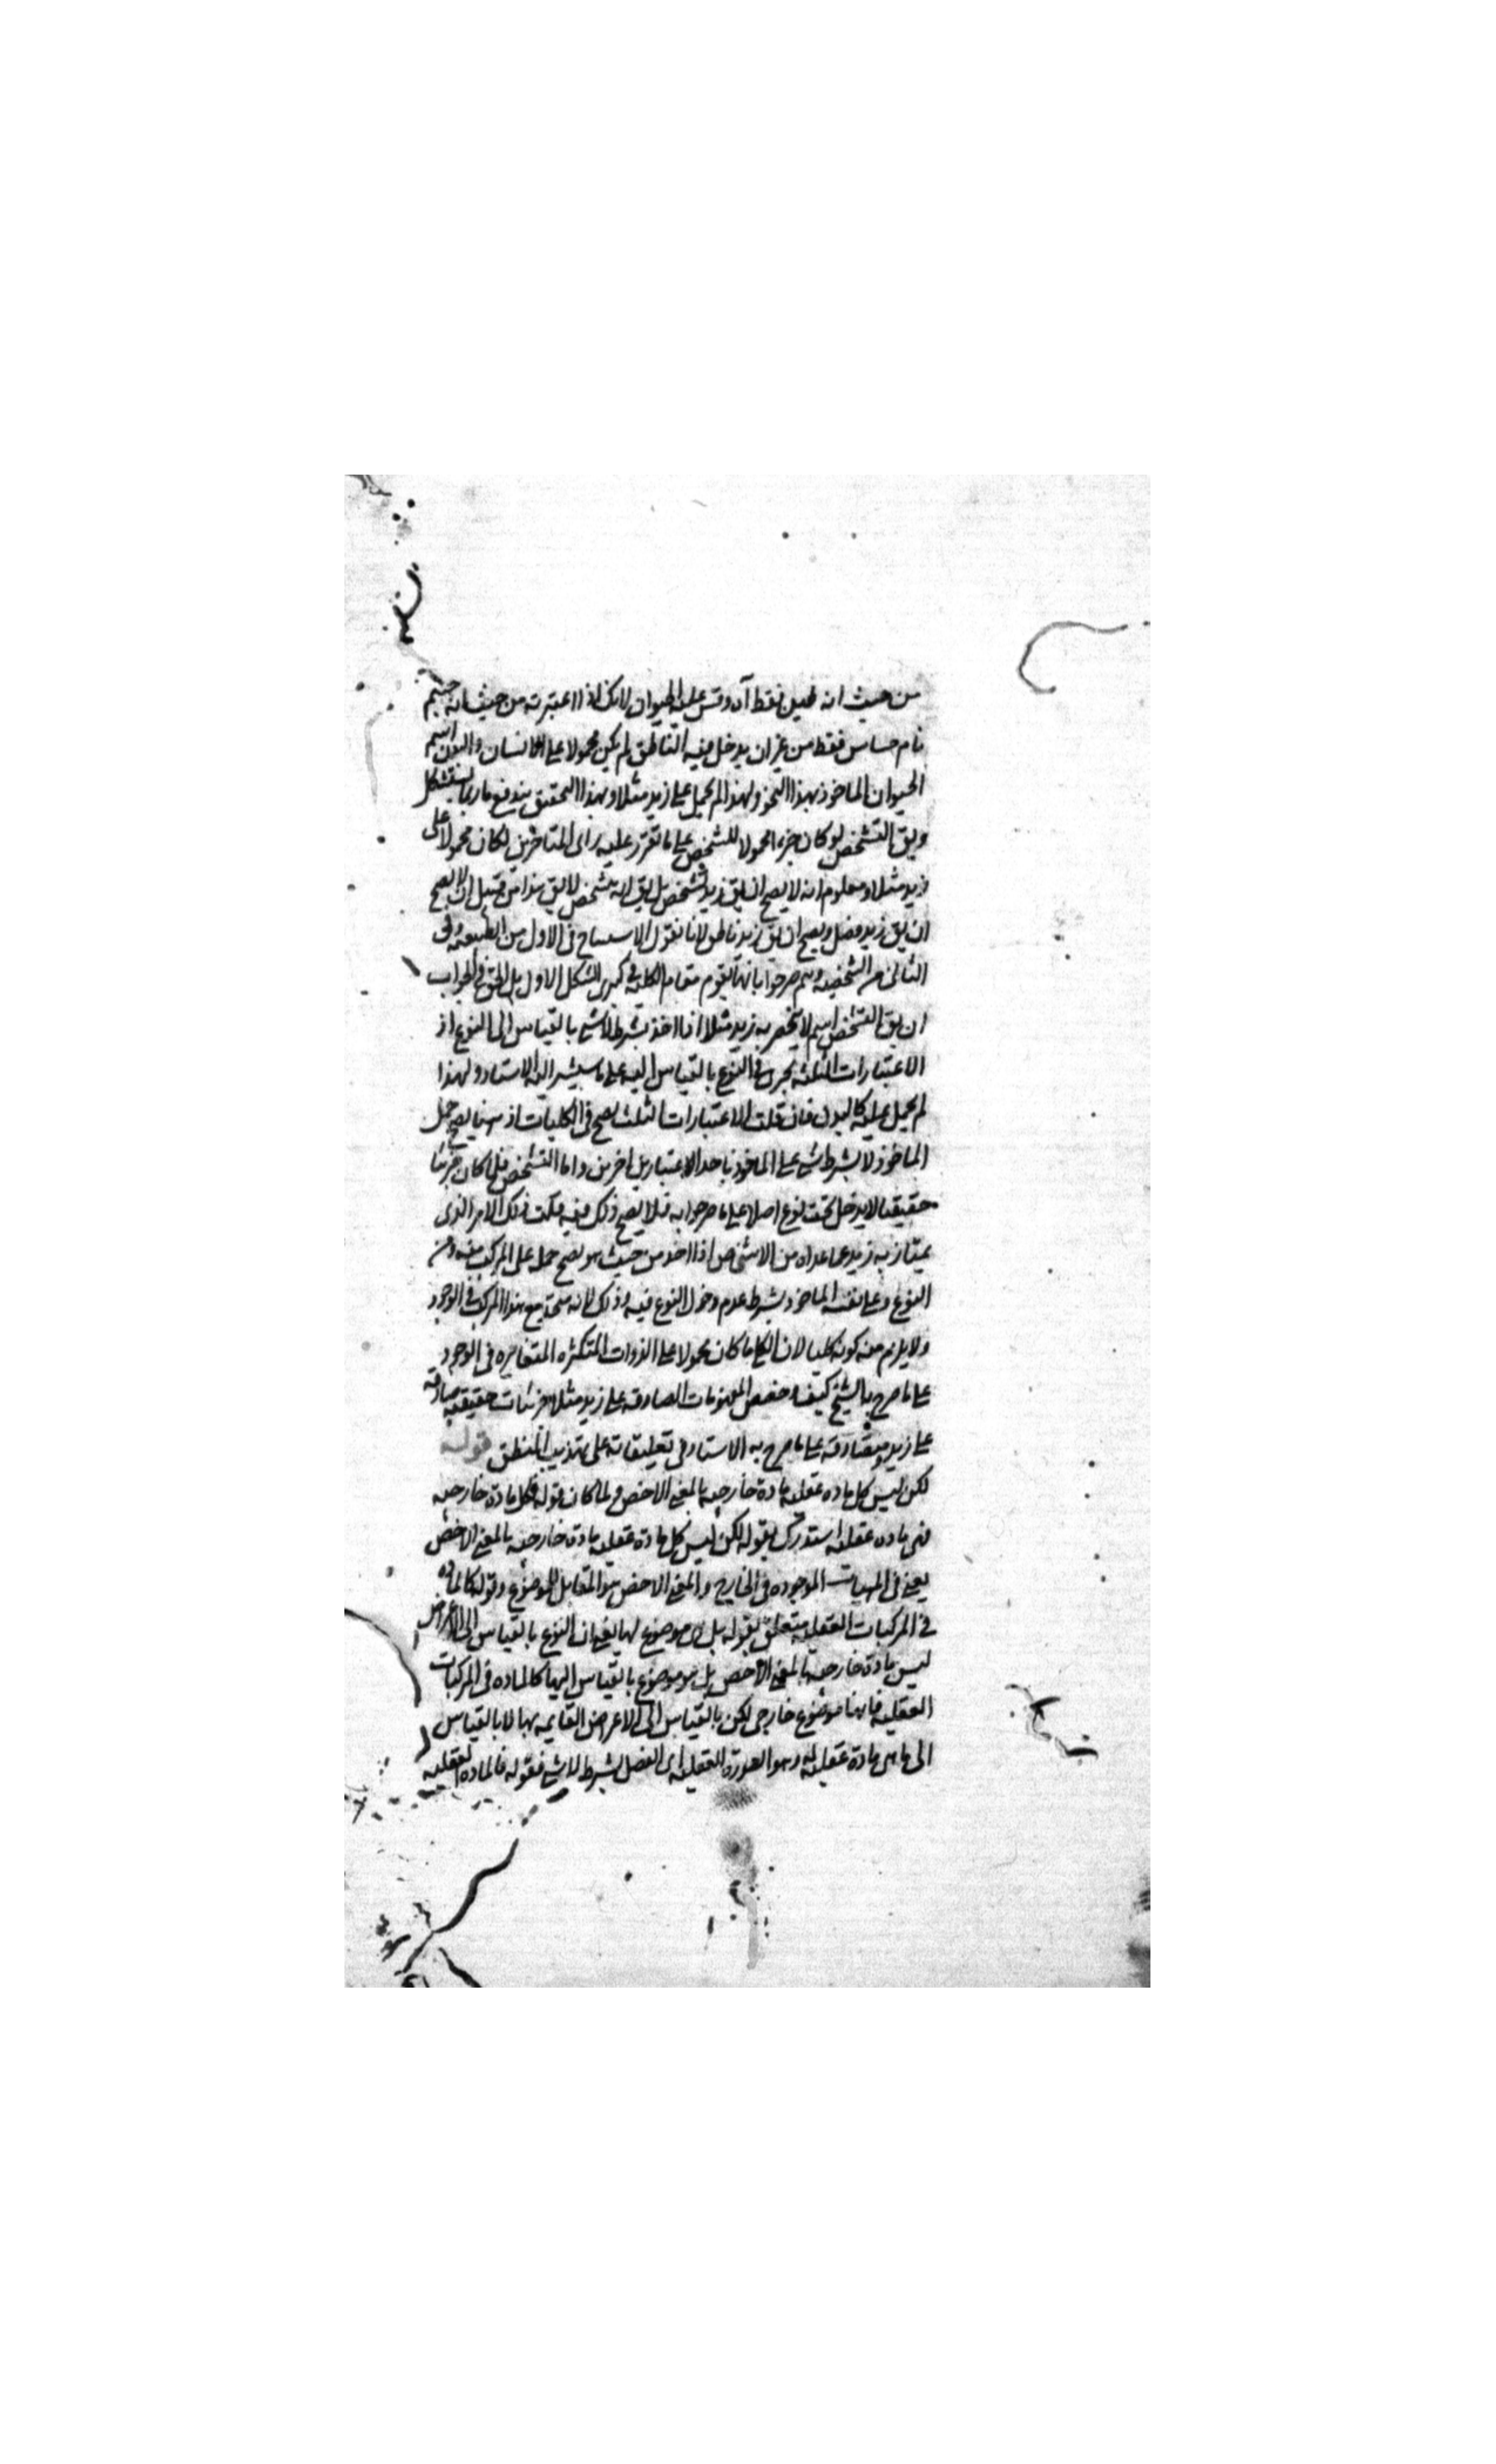 من حيث انه طين فقط آه وقس عليه الحيوان لانك اذا اعتبرته من حيث انه جسم
نام حساس فقط من غير ان يدخل فيه الناطق لم يكن محمولا على الانسان والبدن اسم
الحيوان الماخوذ بهذا النحو ولهذا لم يحمل على زيد مثلا وبهذا التحقيق يندفع ما ربما يستشكل
ويق التشخص لو كان جزء محمولا للشخص على ما تقرر عليه راى المتاخرين لكان محمولا على
زيد مثلا ومعلوم انه لا يصح ان يق زيد تشخص بل يق انه متشخص لا يق هذا من قبيل ان لا يصح
ان يق زيد فصل ويصح ان يق زيد ناطق لانا نقول الامتناع فى الاول من الطبيعة وفى
الثانى من الشخصية وهم صرحوا بانها تقوم مقام الكلية فى كبرى الشكل الاول بل الحق فى الجواب
ان يق التشخص اسم لا ينحصر به زيد مثلا اذا اخذ بشرط لا شى بالقياس الى النوع اذ
الاعتبارات الثلثة تجرى فى النوع بالقياس اليه على ما سيشير اليه الاستاد ولهذا
لم يحمل عليه كالبدن فان قلت الاعتبارات الثلث يصح فى الكليات اذ هنا يصح حمل
الماخوذ لا بشرط شى على الماخوذ باحد الاعتبارين اخرين واما التشخص فلما كان جزئيا
حقيقيا لا يدخل تحت نوع اصلا على ما صرحوا به فلا يصح ذلك فيه قلت ذلك الامر الذى
يمتاز به زيد عما عداه من الاشخاص اذا اخذ من حيث هو يصح حمله على المركب منه ومن
النوع وعلى نفسه الماخوذ بشرط عدم دخول النوع فيه وذلك لانه متحد مع هذا المركب فى الوجود
ولا يلزم منه كونه كليا لان الكلى ما كان محمولا على الذوات المتكثره المتغايره فى الوجود
على ما صرح به الشيخ كيف وحصص المفهومات الصادقه على زيد مثلا جزئيات حقيقيه صادقه
على زيد ومتصادقه على ما صرح به الاستاد فى تعليقاته على تهذيب المنطق قوله
لكن ليس كل ماده عقليه مادة خارجيه بالمعنى الاخص ولما كان قوله فكل مادة خارجيه
فهى ماده عقليه استدرك بقوله لكن ليس كل مادة عقليه مادة خارجيه بالمعنى الاخص
يعنى فى المهيات الموجوده فى الخارج والمعنى الاخص هو المقابل للموضوع وقوله كالماده
فى المركبات العقليه متعلق بقوله بل هى موضوع لها يعنى ان النوع بالقياس الى الاعراض
ليس مادة خارجيه بالمعنى الاخص بل هو موضوع بالقياس اليها كالماده فى المركبات
العقليه فانها موضوع خارجى لكن بالقياس الى الاعراض القايمه بها لا بالقياس
الى ما هى مادة عقليه له وهو الصورة العقليه اى الفصل بشرط لا شى فقوله فالماده العقليه